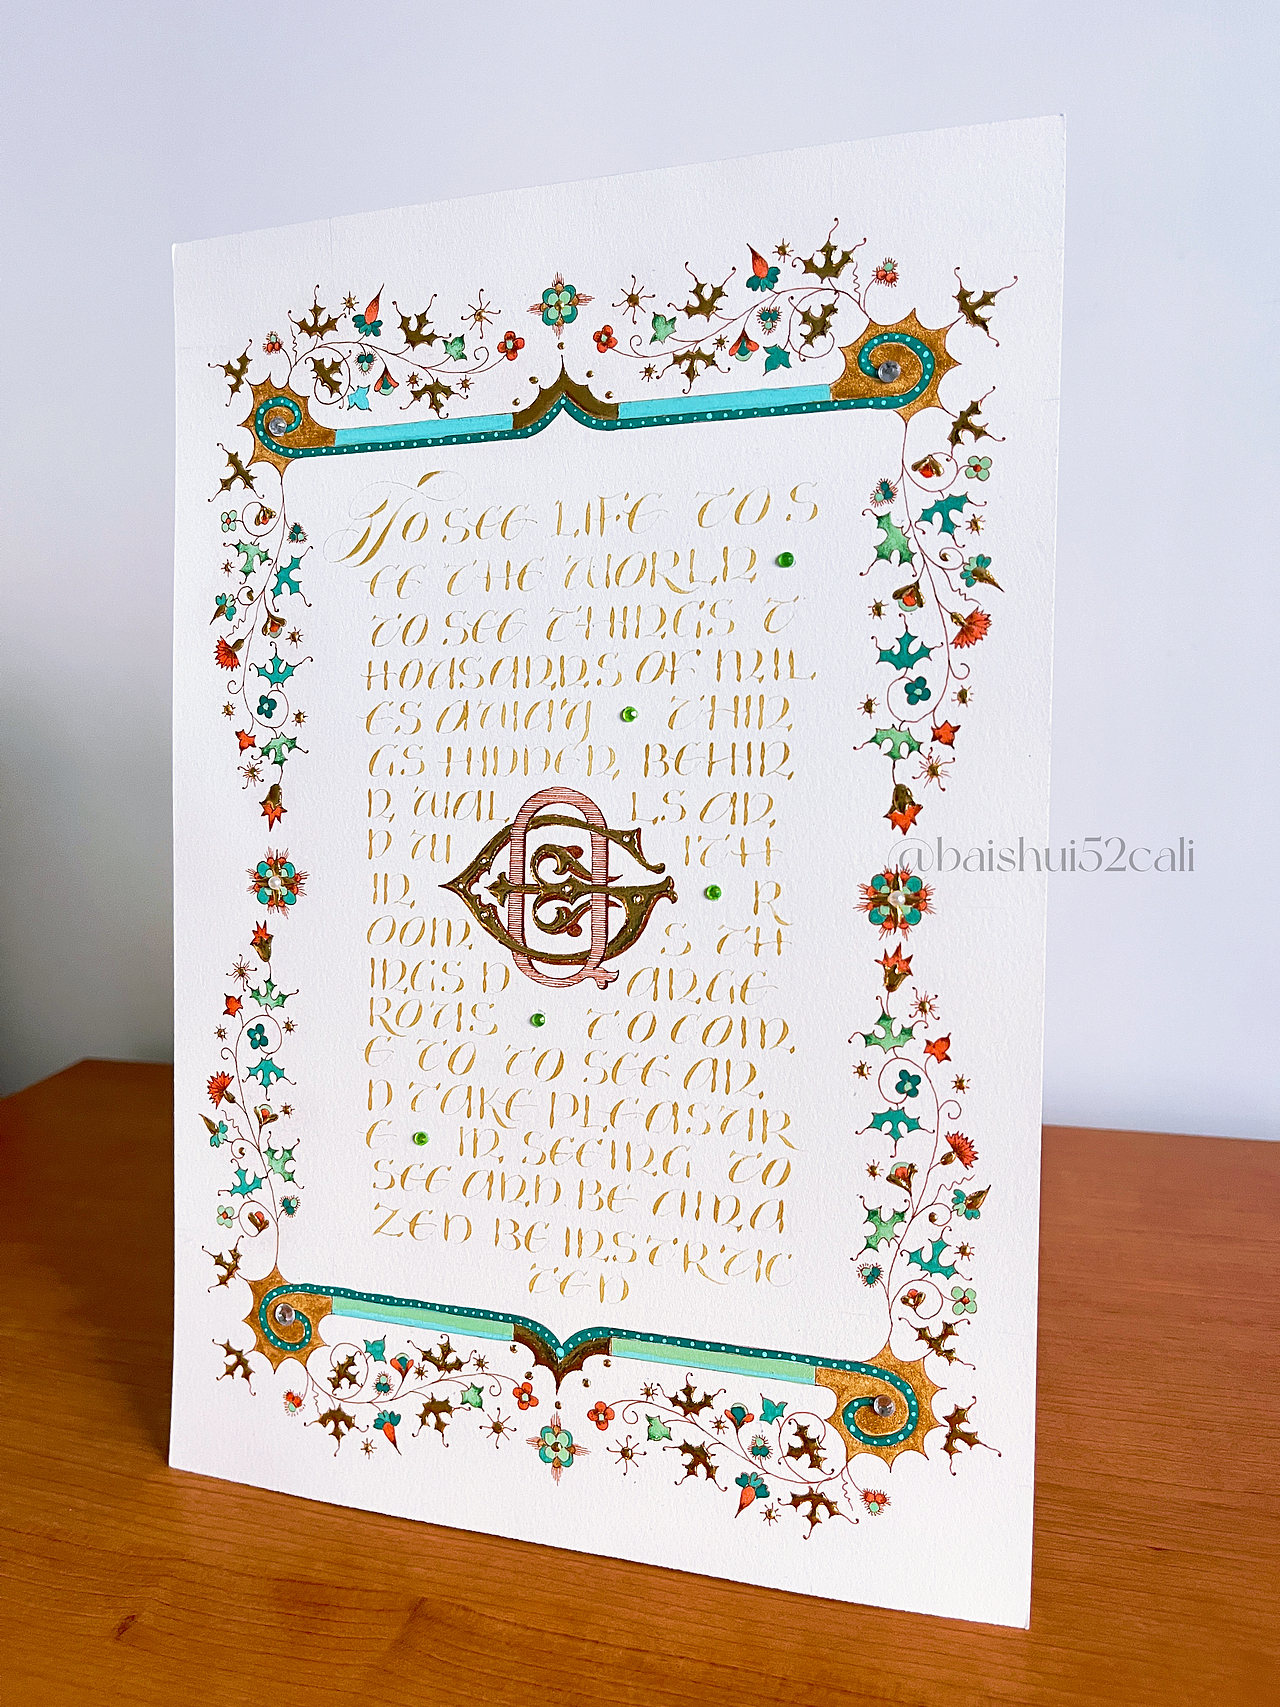 To SEE LIFE TO S
EE THE WORLD
TO SEE THINGS T
HOUSANDS OF MIL
ES AWAY THIN
GS HIDDEN BEHIN
D WAL LS AN
D W ITH
IN R
OOM S TH
INGS D ANGE
ROUS TO COM
E TO TO SEE AN
D TAKE PLEASUR
E IN SEEING TO
SEE AND BE AMA
ZED BE INSTRUC
TED
@baishui52cali